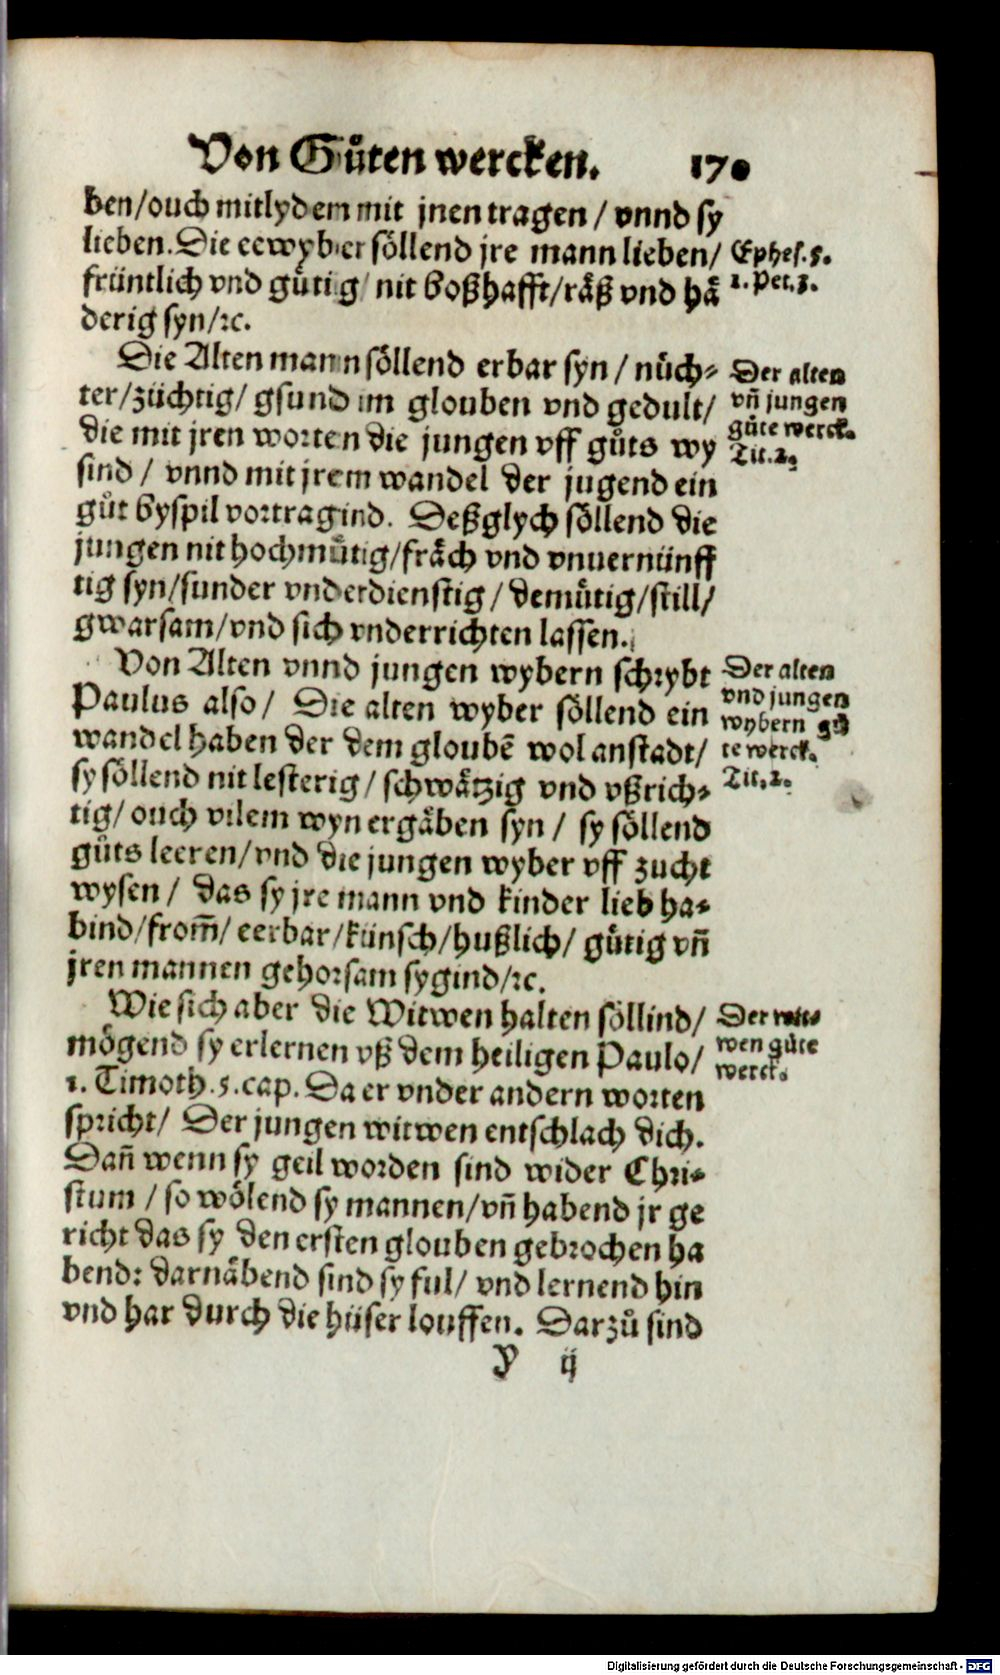 Von Gůten wercken. 170
ben/ouch mitlydem mit jnen tragen / vnnd sy
lieben. Die eewyber söllend jre mann lieben/
früntlich vnd gůtig/ nit boßhafft/räß vnd hä
derig syn/ꝛc.
Ephes. 5.
1. Pet. 3.
Die Alten mann söllend erbar syn / nüch-
ter/züchtig/ gsund im glouben vnd gedult/
die mit jren worten die jungen vff gůts wy
sind / vnnd mit jrem wandel der jugend ein
gůt byspil vortragind. Deßglych söllend die
jungen nit hochmůtig/fräch vnd vnuernünff
tig syn/sunder vnderdienstig / demůtig/still/
gwarsam/vnd sich vnderrichten lassen.
Der alten
vñ jungen
gůte werck.
Tit. 2.
Von Alten vnnd jungen wybern schrybt
Paulus also/ Die alten wyber söllend ein
wandel haben der dem gloubē wol anstadt/
sy söllend nit lesterig/ schwätzig vnd vßrich-
tig/ ouch vilem wyn ergäben syn / sy söllend
gůts leeren/vnd die jungen wyber vff zucht
wysen / das sy jre mann vnd kinder lieb ha-
bind/from̃/ eerbar/künsch/hußlich/ gůtig vñ
jren mannen gehorsam sygind/ꝛc.
Der alten
vnd jungen
wybern gů
te werck.
Tit. 2.
Wie sich aber die Witwen halten söllind/
mögend sy erlernen vß dem heiligen Paulo/
1. Timoth. 5. cap. Da er vnder andern worten
spricht/ Der jungen witwen entschlach dich.
Dañ wenn sy geil worden sind wider Chri-
stum / so wölend sy mannen/vñ habend jr ge
richt das sy den ersten glouben gebrochen ha
bend: darnäbend sind sy ful/ vnd lernend hin
vnd har durch die hüser louffen. Darzů sind
Der wit-
wen gůte
werck.
Y ij
Digitalisierung gefördert durch die Deutsche Forschungsgemeinschaft - DFG